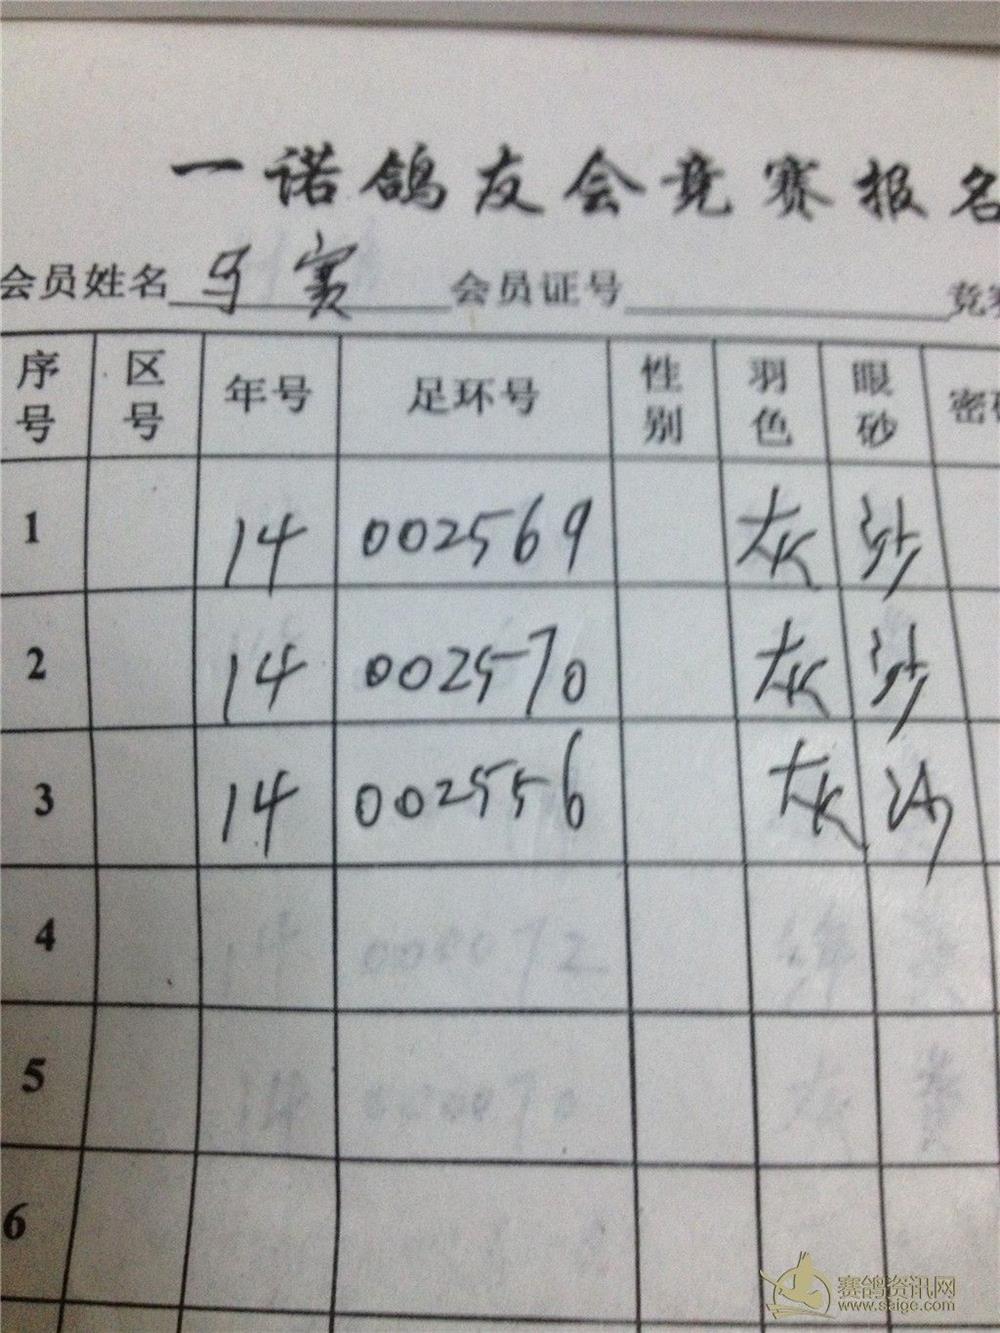 一诺鸽友会竞赛报名
会员姓名 马赛 会员证号 竞赛
序号 区号 年号 足环号 性别 羽色 眼砂 密码
1 14 002569 灰 沙
2 14 002570 灰 沙
3 14 002556 灰 沙
4 14 000072
5 14 000070 灰 黄
6
赛鸽资讯网
www.saige.com